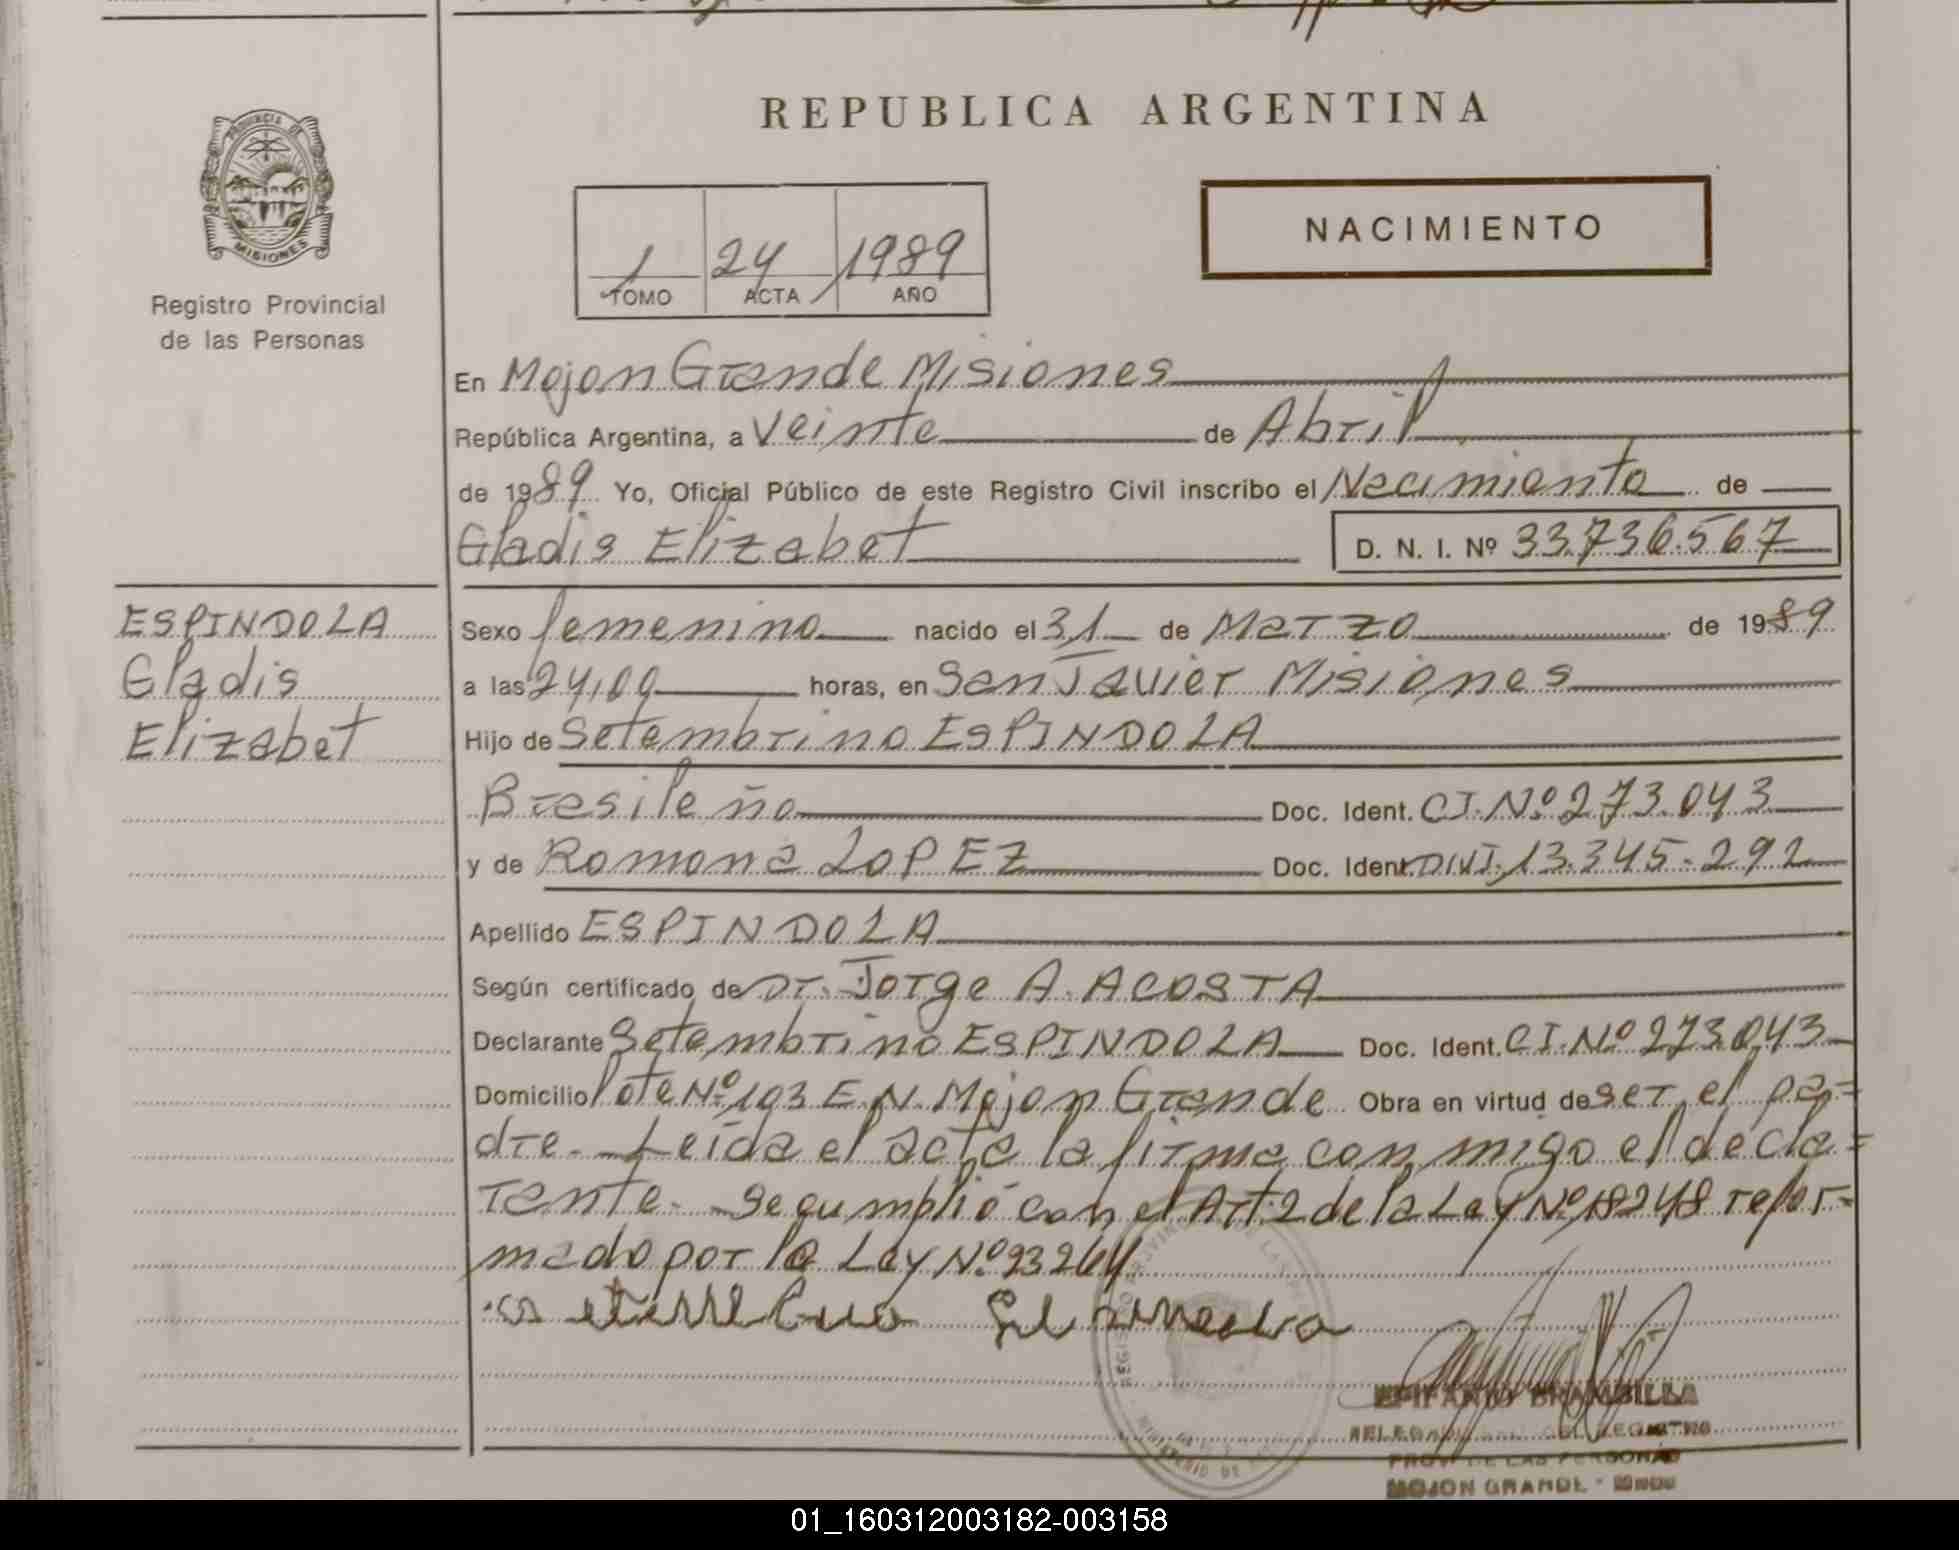 REPUBLICA ARGENTINA
PROVINCIA DE
MISIONES
Registro Provincial
de las Personas
NACIMIENTO
1 24 1989
TOMO ACTA AÑO
En Mojon Grande Misiones
República Argentina, a Veinte de Abril
de 1989 Yo, Oficial Público de este Registro Civil inscribo el Nacimiento de
Gladis Elizabet D. N. I. Nº 33.736.567
ESPINDOLA
Gladis
Elizabet
Sexo femenino nacido el 31 de Marzo de 1989
a las 24,00 horas, en San Javier Misiones
Hijo de Setembrino ESPINDOLA
Brasileño Doc. Ident. CI.Nº 273.043
y de Romona LOPEZ Doc. Ident. DNI. 13.345.292
Apellido ESPINDOLA
Según certificado de Dr. Jorge A. ACOSTA
Declarante Setembrino ESPINDOLA Doc. Ident. CI.Nº 273.043
Domicilio lote Nº 103 E.N. Mojon Grande Obra en virtud de ser el pa=
dre. Leida el acta la firma con migo el decla=
rante. Se cumplió con el Art 2 de la Ley Nº 18248 refor=
mado por la Ley Nº 23264
EPIFANIO BRAMBILLA
REGISTRO
PROV. DE LAS PERSONAS
MOJON GRANDE -
01_160312003182-003158